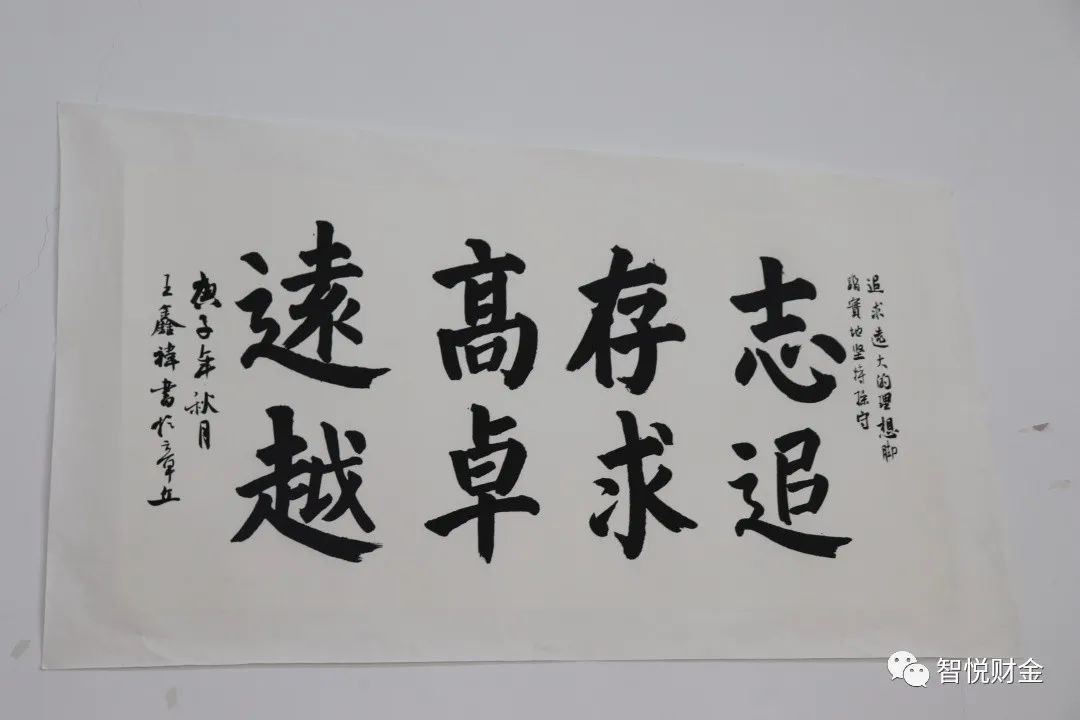 追求遠大的理想脚
踏實地坚持操守
志存髙遠
追求卓越
庚子年秋月
王鑫禕書於章丘
智悦财金